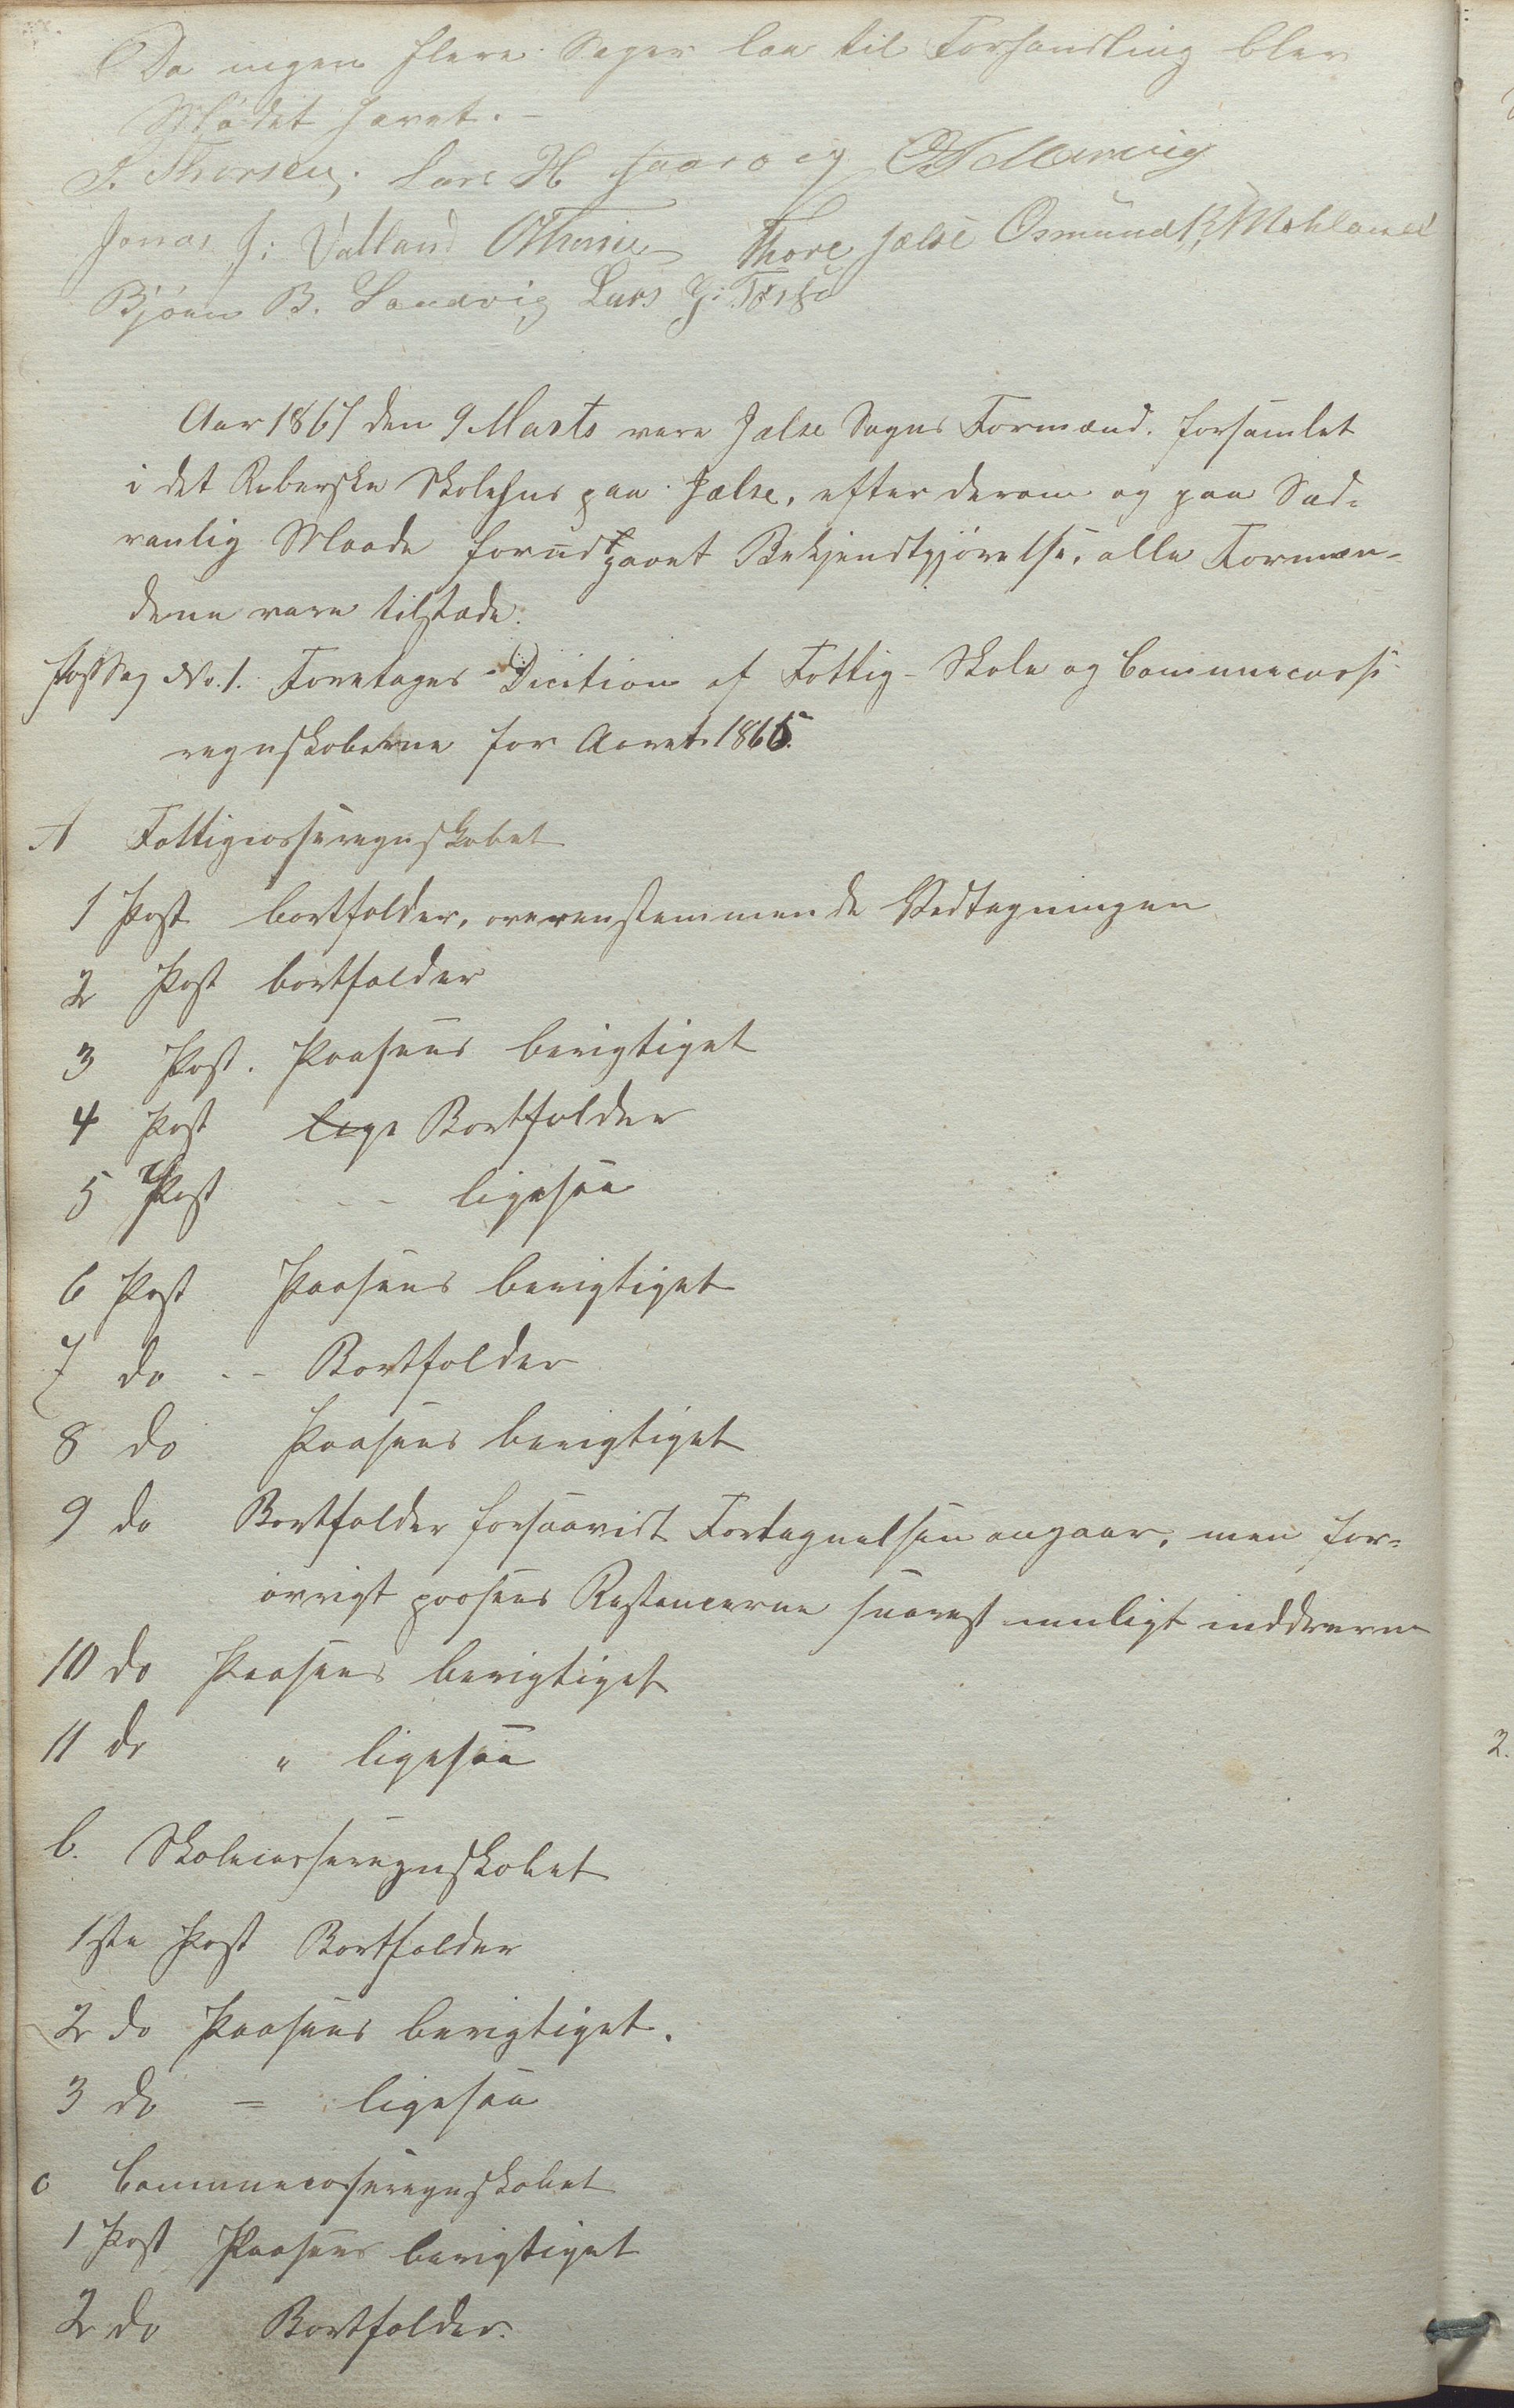 Da ingen flere Sager laa til Forhandling blev
Mødet hævet. -
J. Thorsen, Lars H
Jonas J: Valland Thore Jælse Osmund K. Mehland
Bjørn B. Sandvig Lars J:
Aar 1867 den 9 Marts vare Jælse Sogns Formænd forsamlet
i det Reberske Skolehus paa Jælse, efter derom og paa Sæd-
vanlig Maade forudgaaet Bekjendtgjørelse, alle Formæn-
dene vare tilstæde.
Sag No. 1. Foretages Decition af Fattig- Skole og Communecasse
regnskaberne for Aaret 1865.
A Fattigcasseregnskabet
1 Post bortfalder, overenstemmende Vedtagningen
2 Post bortfalder
3 Post. Paasees berigtiget
4 Post lige Bortfalder
5 Post - - ligesaa
6 Post Paasees berigtiget
7 do - - Bortfalder
8 do Paasees berigtiget
9 do Bortfalder forsaavidt Fortegnelsen angaar, men for-
øvrigt paasees Restancerne snarest muligt inddreven
10 do Paasees berigtiget
11 do " ligesaa
b. Skolecasseregnskabet
1ste Post Bortfalder
2 do Paasees berigtiget.
3 do = ligesaa
c Communecasseregnskabet
1 Post Paasees berigtiget
2 do Bortfalder.
2.